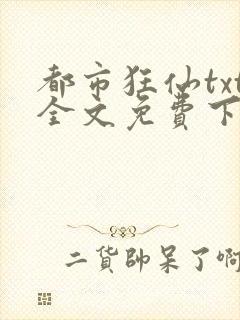 都市狂仙txt
全文免費下
二貨帥呆了啊